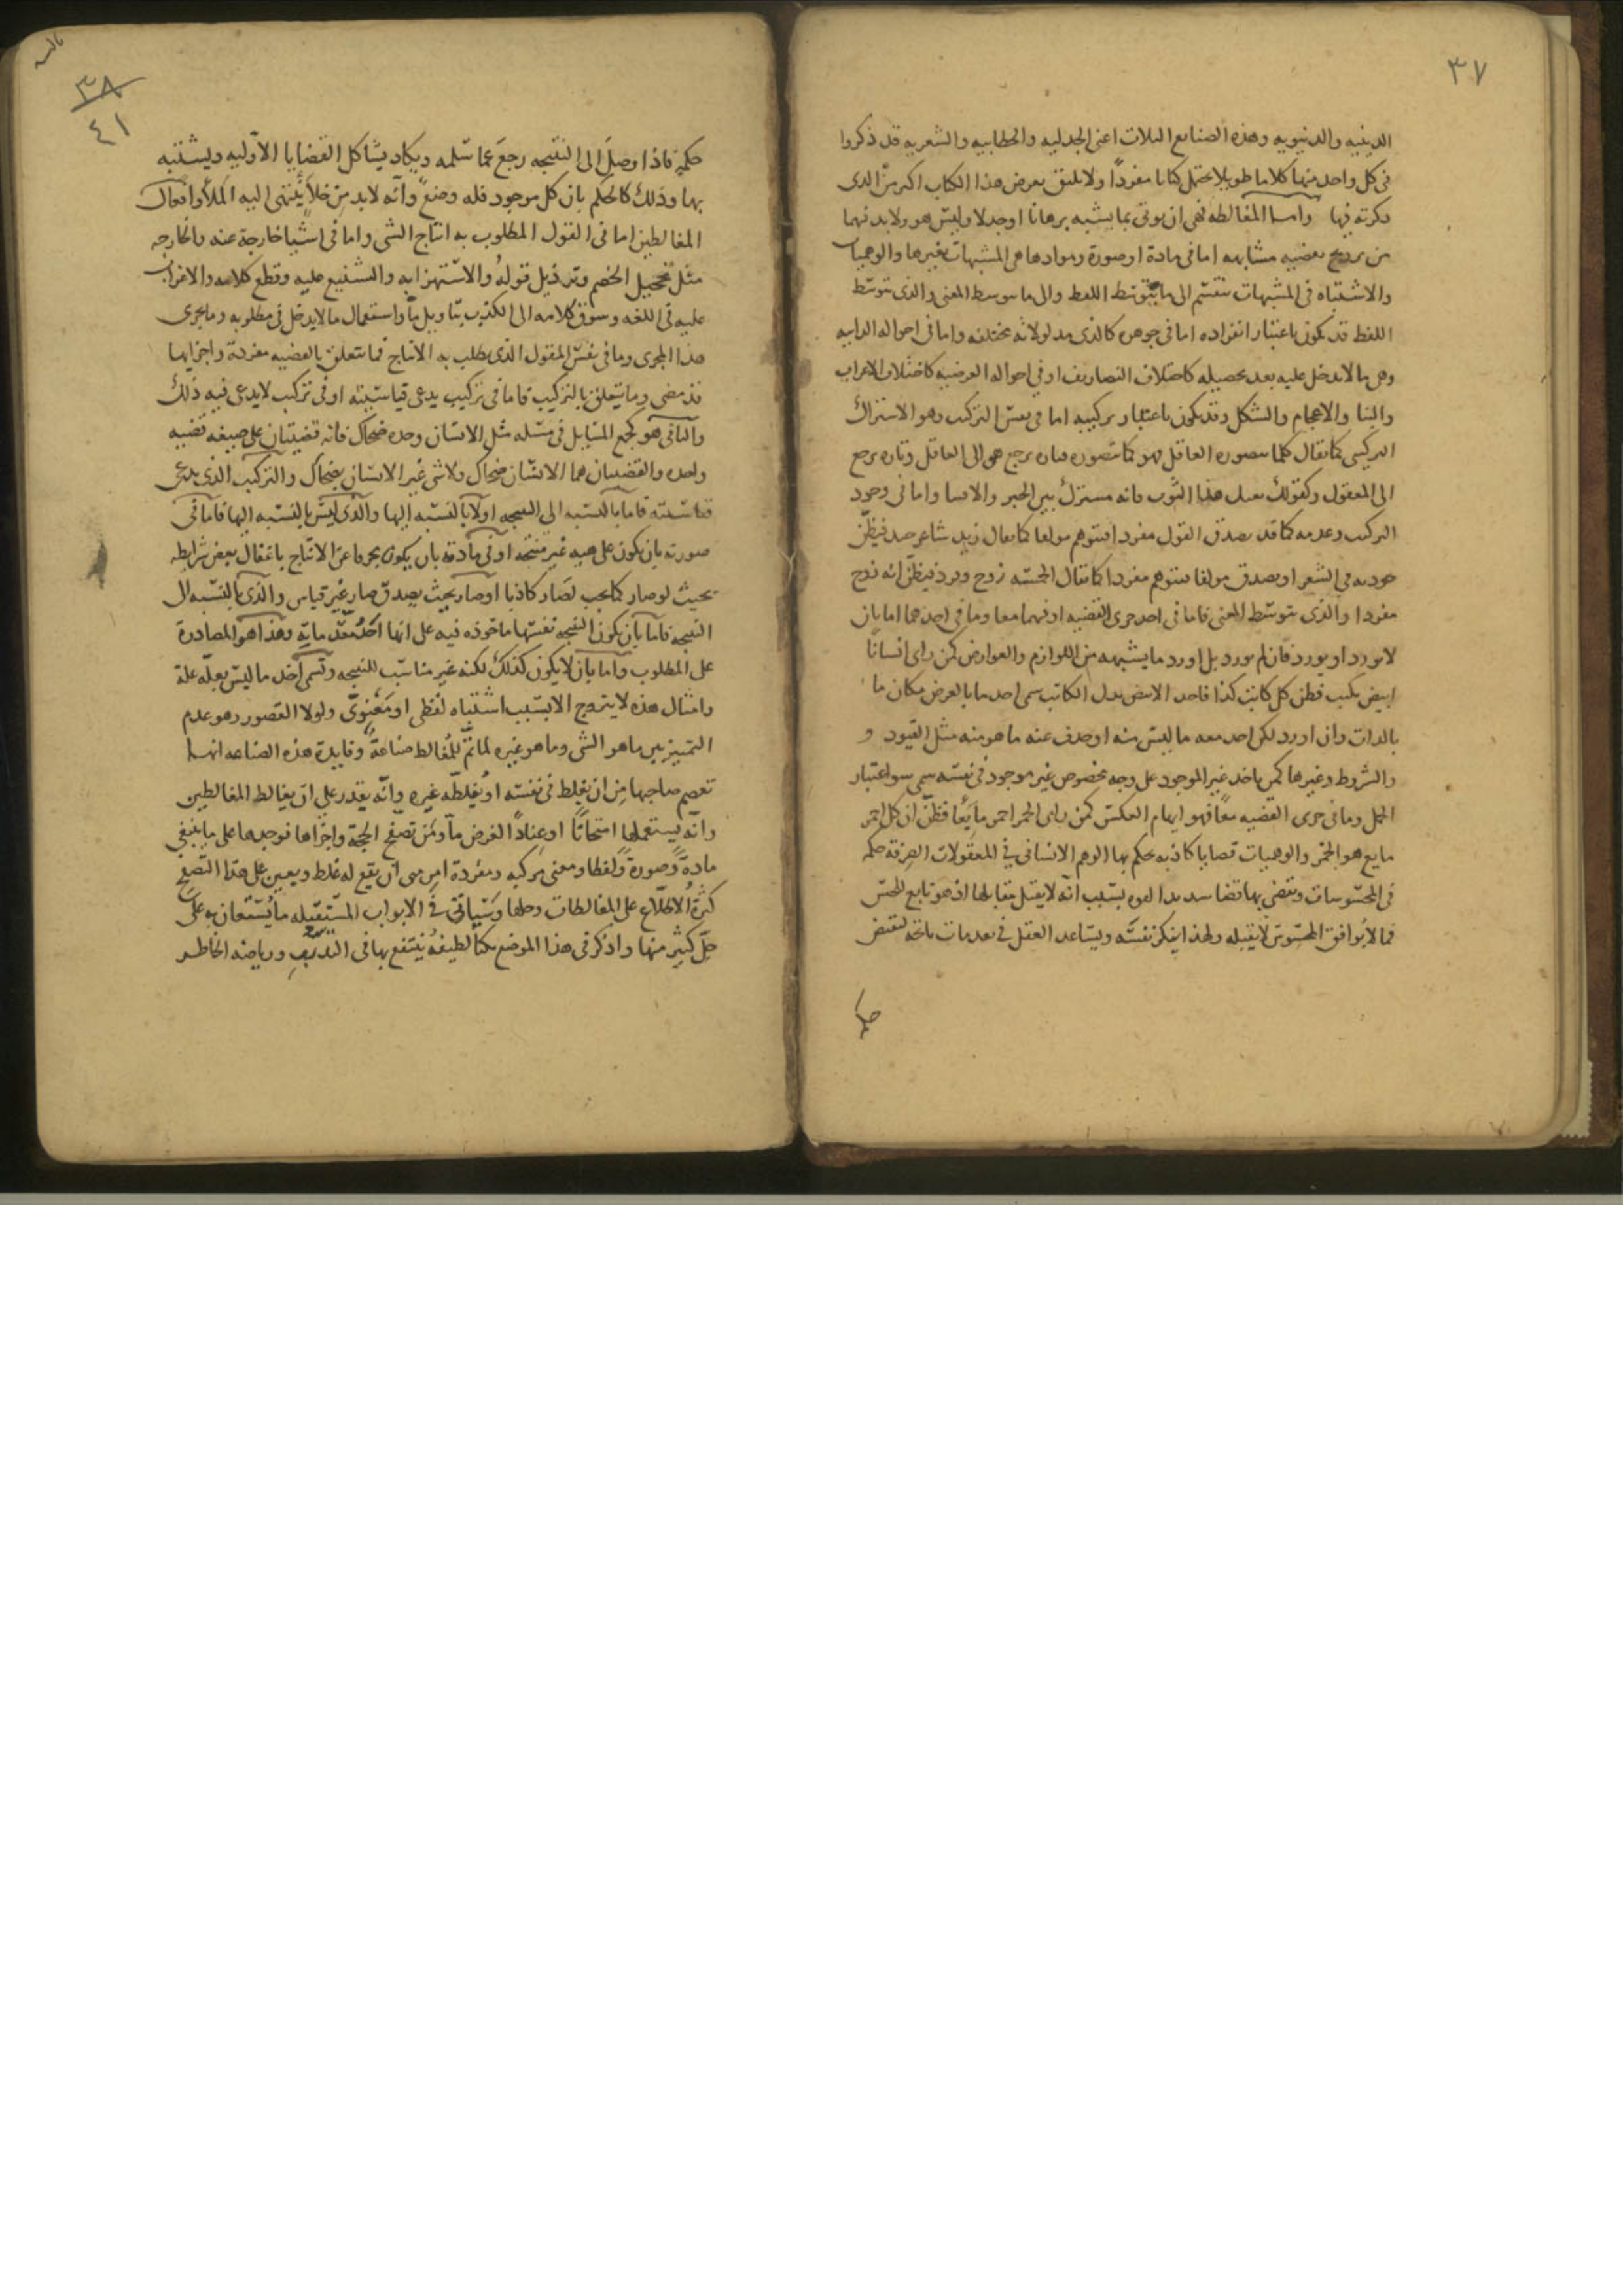 ٣٧
الدينيه والدنيويه وهذه الصنايع الثلاث اعنى الجدليه والخطابيه والشعريه قد ذكروا
فى كل واحد منها كلاما طويلا يحتمل كتابا مفردا ولا يليق بعرض هذا الكتاب اكثر من الذى
ذكرته فيها وامــا المغالطه فهى ان يوتى بما يشبه برهانا او جدلا وليس هو ولا بد فيها
من ترويج بقضيه مشابهه اما فى مادة او صورة وموادها هى المشبهات بغيرها والوهميات
والاشتباه فى المشبهات ينقسم الى ما يتوسط اللفظ والى ما يتوسط المعنى والذى يتوسط
اللفظ قد يكون باعتبار انفراده اما فى جوهره كالذى مدلولاته مختلفه واما فى احواله الذاتيه
وهى ما لا تدخل عليه بعد تحصيله كاختلاف التصاريف او فى احواله العرضيه كاختلاف الاعراب
والبنا والاعجام والشكل وقد يكون باعتبار تركيبه اما فى نفس التركيب وهو الاشتراك
التركيبى كما يقال كلما يتصوره العاقل فهو كما يتصوره فتاره يرجع هو الى العاقل وتاره يرجع
الى المعقول وكقولك هذا الثوب فانه مشترك بين الخبر والانشا واما فى وجود
التركيب وعدمه كما قد يصدق القول مفردا فيتوهم مولفا كما يقال زيد شاعر جيد فيظن
جودته فى الشعر او يصدق مولفا فيتوهم مفردا كما يقال الخمسه زوج وفرد فيظن انه زوج
مفردا والذى يتوسط المعنى فاما فى احد جزى القضيه او فيهما معا وما فى احدهما اما بان
لا يورد او يورد فان لم يورد بل اورد ما يشبهه من اللوازم والعوارض كمن راى انسانا
ابيض يكتب فظن كل كاتب كذا فاخذ الابيض بدل الكاتب سمى اخذ ما بالعرض مكان ما
بالذات وان اورد لكن اخذ معه ما ليس منه او حذف عنه ما هو منه مثل القيود و
والشروط وغيرها كمن ياخذ غير الموجود على وجه مخصوص غير موجود فى نفسه سمى سو اعتبار
الحمل وما فى جزى القضيه معا فهو ايهام العكس كمن راى الخمر احمر مايعا فظن ان كل احمر
مايع هو الخمر والوهميات قضايا كاذبه يحكم بها الوهم الانسانى فى المعقولات الصرفة حكمه
فى المحسوسات ويقضى بها قضا شديد القوه بسبب انه لا يقبل مقابلها اذ هو تابع للحس
فما لا يوافق المحسوس لا يقبله ولهذا ينكر نفسه ويساعد العقل فى مقدمات ناتجه لنقيض
حكمه
٣٨
٤١
حكمه فاذا وصل الى النتيجه رجع عما سلمه ويكاد يشاكل القضايا الاوليه ويشتبه
بها وذلك كالحكم بان كل موجود فله وضع وانه لا بد من خلا ينتهى اليه الملا وافعال
المغالطين اما فى القول المطلوب به انتاج الشى واما فى اشيا خارجة عنه والخارجه
مثل تخجيل الخصم وترذيل قوله والاستهزا به والتشنيع عليه وقطع كلامه والاغراب
عليه فى اللغه وسوق كلامه الى الكذب بتاويل ما واستعمال ما لا يدخل فى مطلوبه وما يجرى
هذا المجرى وما فى نفس المقول الذى يطلب به الانتاج فما يتعلق بالقضيه مفردة واجزايها
قد مضى وما يتعلق بالتركيب فاما فى تركيب يدعى قياسيته او فى تركيب لا يدعى فيه ذلك
والثانى هو كجمع المسايل فى مسله مثل الانسان وحده ضحاك فانه قضيتان على صيغه قضيه
واحده والقضيتان هما الانسان ضحاك ولا شى غير الانسان بضحاك والتركيب الذى يدعى
قياسيته فاما بالنسبه الى النتيجه اولا بالنسبه اليها والذى ليس بالنسبه اليها فاما فى
صورته بان يكون على هيه غير منتجه او فى مادته بان يكون بحروفا عن الانتاج باغفال بعض شرايطه
بحيث لو صار كما يجب لصار كاذبا او صار بحيث يصدق صار غير قياس والذى بالنسبه الى
النتيجه فاما بان يكون النتيجه نفسها ماخوذه فيه على انها احد مقدماته وهذا هو المصادرة
على المطلوب واما بان لا يكون كذلك لكنه غير مناسب للنتيجه وتسمى اخذ ما ليس بعله علة
وامثال هذه لا يتروج الا بسبب اشتباه لفظى او معنوى ولولا القصور وهو عدم
التمييز بين ما هو الشى وما هو غيره لما تم للمغالط صناعة وفايدة هذه الصناعه انهــا
تعصم صاحبها من ان يغلط فى نفسه او يغلطه غيره وانه يقدر على ان يغالط المغالطين
وانه يستعملها امتحانا او عنادا لغرض ما ومن تصفح الحجة واجزاها فوجدها على ما ينبغى
مادة وصورة ولفظا ومعنى مركبه ومفردة امن من ان يقع له غلط ويعين على هذا التصفح
كثرة الاطلاع على المغالطات وحلها وسياتى فى الابواب المستقبله ما يستعان به على
حل كثير منها واذكر فى هذا الموضع نكتا لطيفه ينتفع بها فى التدرب ورياضه الخاطــر